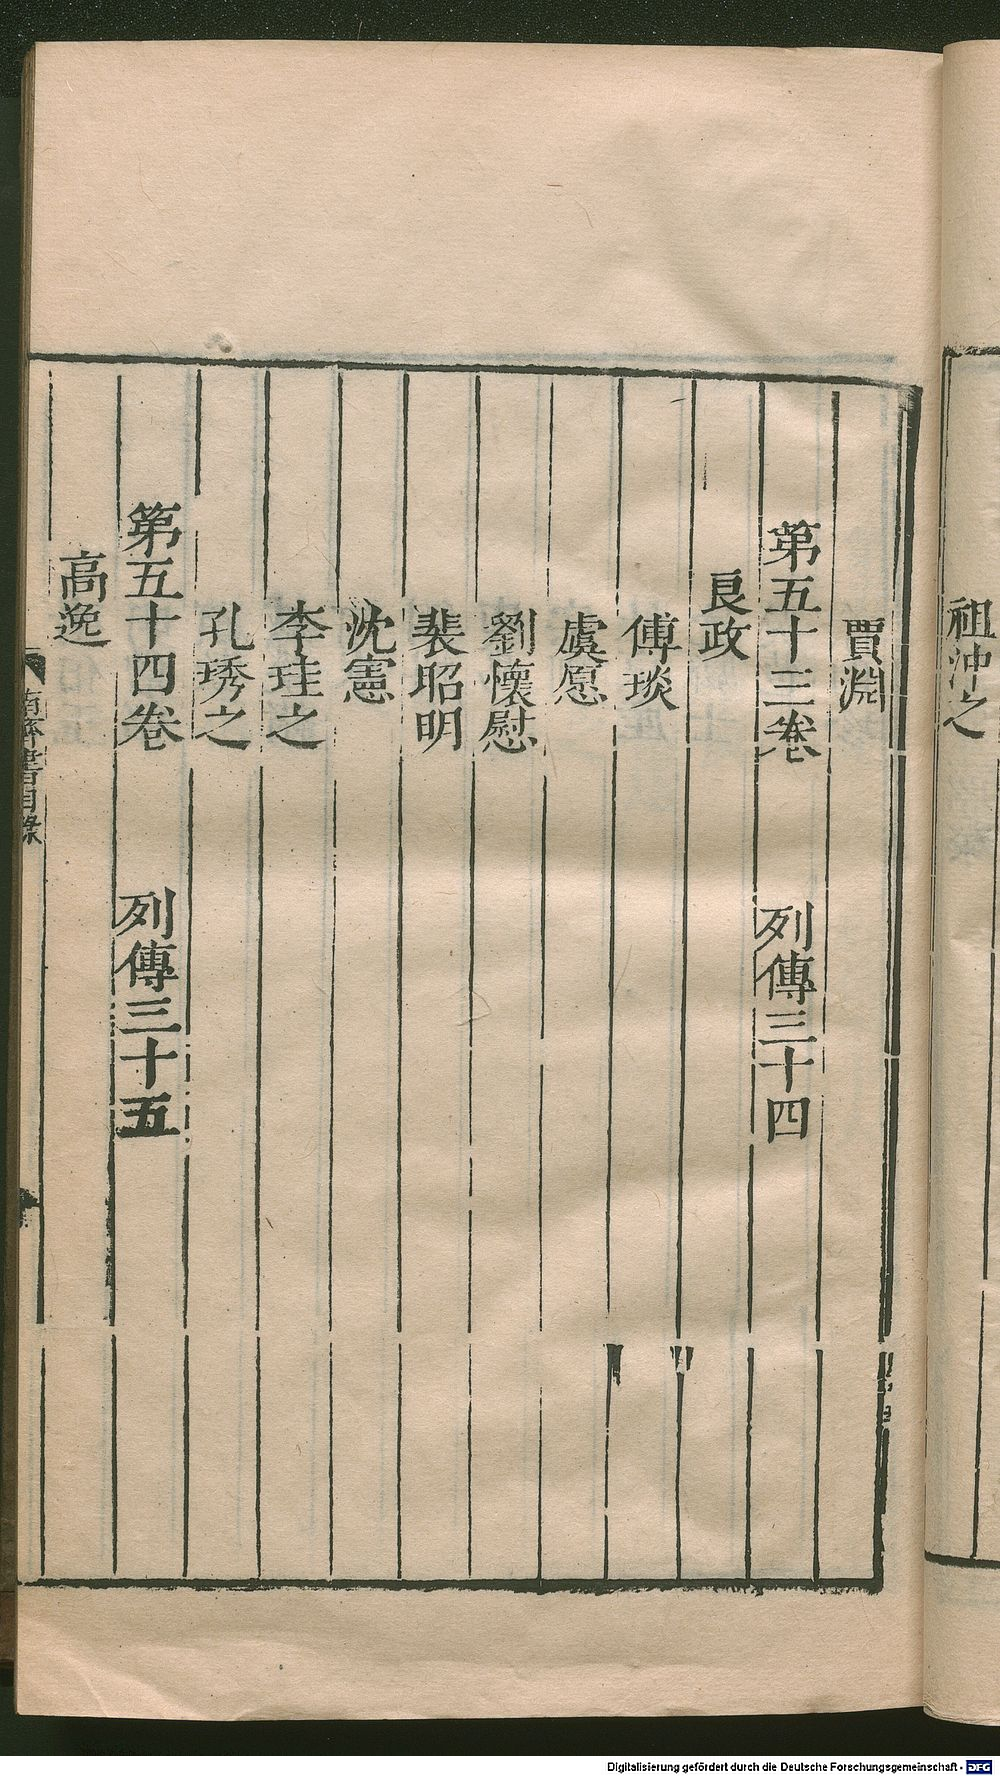 祖沖之
賈淵
第五十三卷 列傳三十四
良政
傅琰
虞愿
劉懷慰
裴昭明
沈憲
李珪之
孔琇之
第五十四卷 列傳三十五
高逸
南齊書目錄
Digitalisierung gefördert durch die Deutsche Forschungsgemeinschaft - DFG